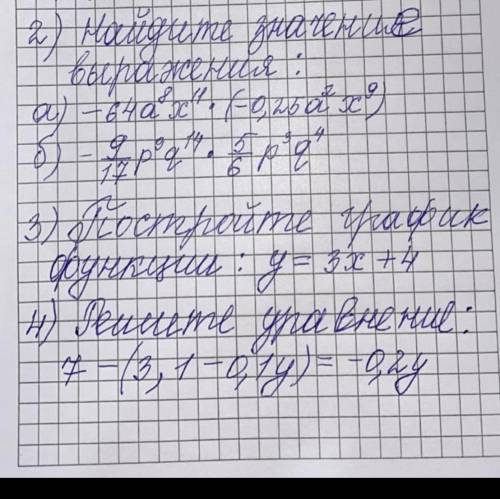 2) Найдите значение
выражения:
а) -64a⁸x¹¹ · (-0,25a²x⁹)
б) -9/17 p⁹q¹⁴ · 5/6 p³q⁴
3) Постройте график
функции: y = 3x + 4
4) Решите уравнение:
7 - (3,1 - 0,1y) = -0,2y